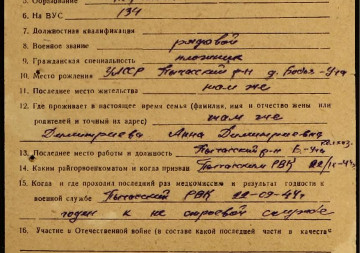 5. Образование
6. На ВУС 134
7. Должностная квалификация
8. Военное звание рядовой
9. Гражданская специальность плотник
10. Место рождения УАССР р-н д.
11. Последнее место жительства там же
12. Где проживает в настоящее время семья (фамилия, имя и отчество жены или
родителей и точный их адрес) там же
Димитриева Анна Димитриевна
13. Последнее место работы и должность р-н колхоз
14. Каким райгорвоенкоматом и когда призван РВК
15. Когда и где проходил последний раз медкомиссию и результат годности к
военной службе РВК 22-09-44г
годен к не строевой службе
16. Участие в Отечественной войне (в составе какой последней части и в качестве